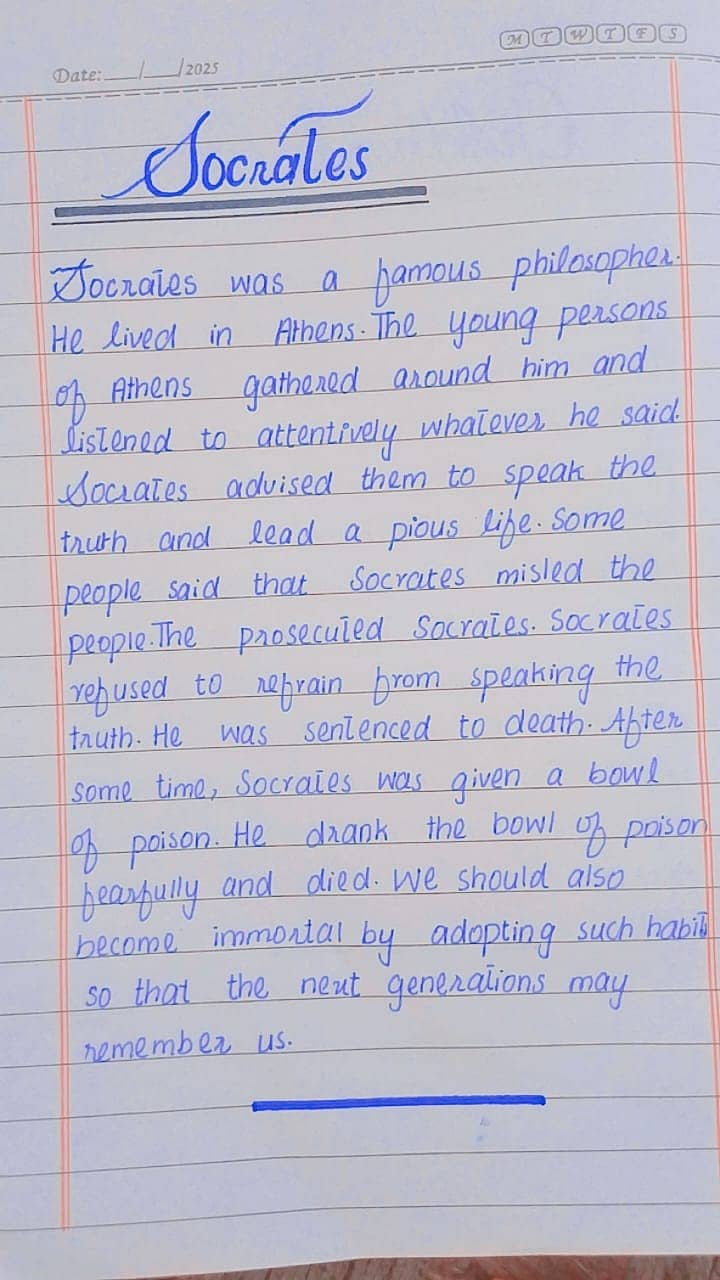 M T W T F S
Date:___/___/2025
Socrates
Socrates was a famous philosopher.
He lived in Athens. The young persons
of Athens gathered around him and
listened to attentively whatever he said.
Socrates advised them to speak the
truth and lead a pious life. Some
people said that Socrates misled the
people. The prosecuted Socrates. Socrates
refused to refrain from speaking the
truth. He was sentenced to death. After
some time, Socrates was given a bowl
of poison. He drank the bowl of poison
fearfully and died. We should also
become immortal by adopting such habit
so that the next generations may
remember us.